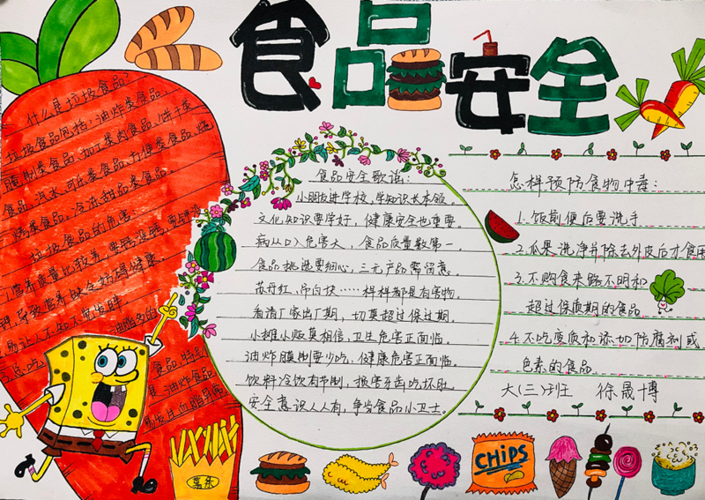 食品安全
什么是垃圾食品：
垃圾食品包括：油炸类食品、
腌制类食品、加工类肉食品、饼干类
食品、汽水、可乐类食品、方便类食品、烧
烤类食品、冷冻甜品类食品。
垃圾食品的危害
食品安全歌谣：
小朋友进学校，学知识长本领。
文化知识要学好，健康安全也重要。
病从口入危害大，食品质量数第一。
食品挑选要细心，三元产品需留意。
苏丹红、吊白块……样样都是有害物。
看清厂家出厂期，切莫超过保过期。
小摊小贩莫相信，卫生危害正面临。
油炸腌制要少吃，健康危害正面临。
饮料冷饮有节制，损害牙齿吃坏肚。
安全意识人人有，争当食品小卫士。
怎样预防食物中毒：
1.饭前便后要洗手
2.瓜果洗净并除去外皮后才食用
3.不购食来路不明和
超过保质期的食品
4.不吃变质和添切防腐剂或
色素的食品
大(三)班 徐晟博
CHIPS